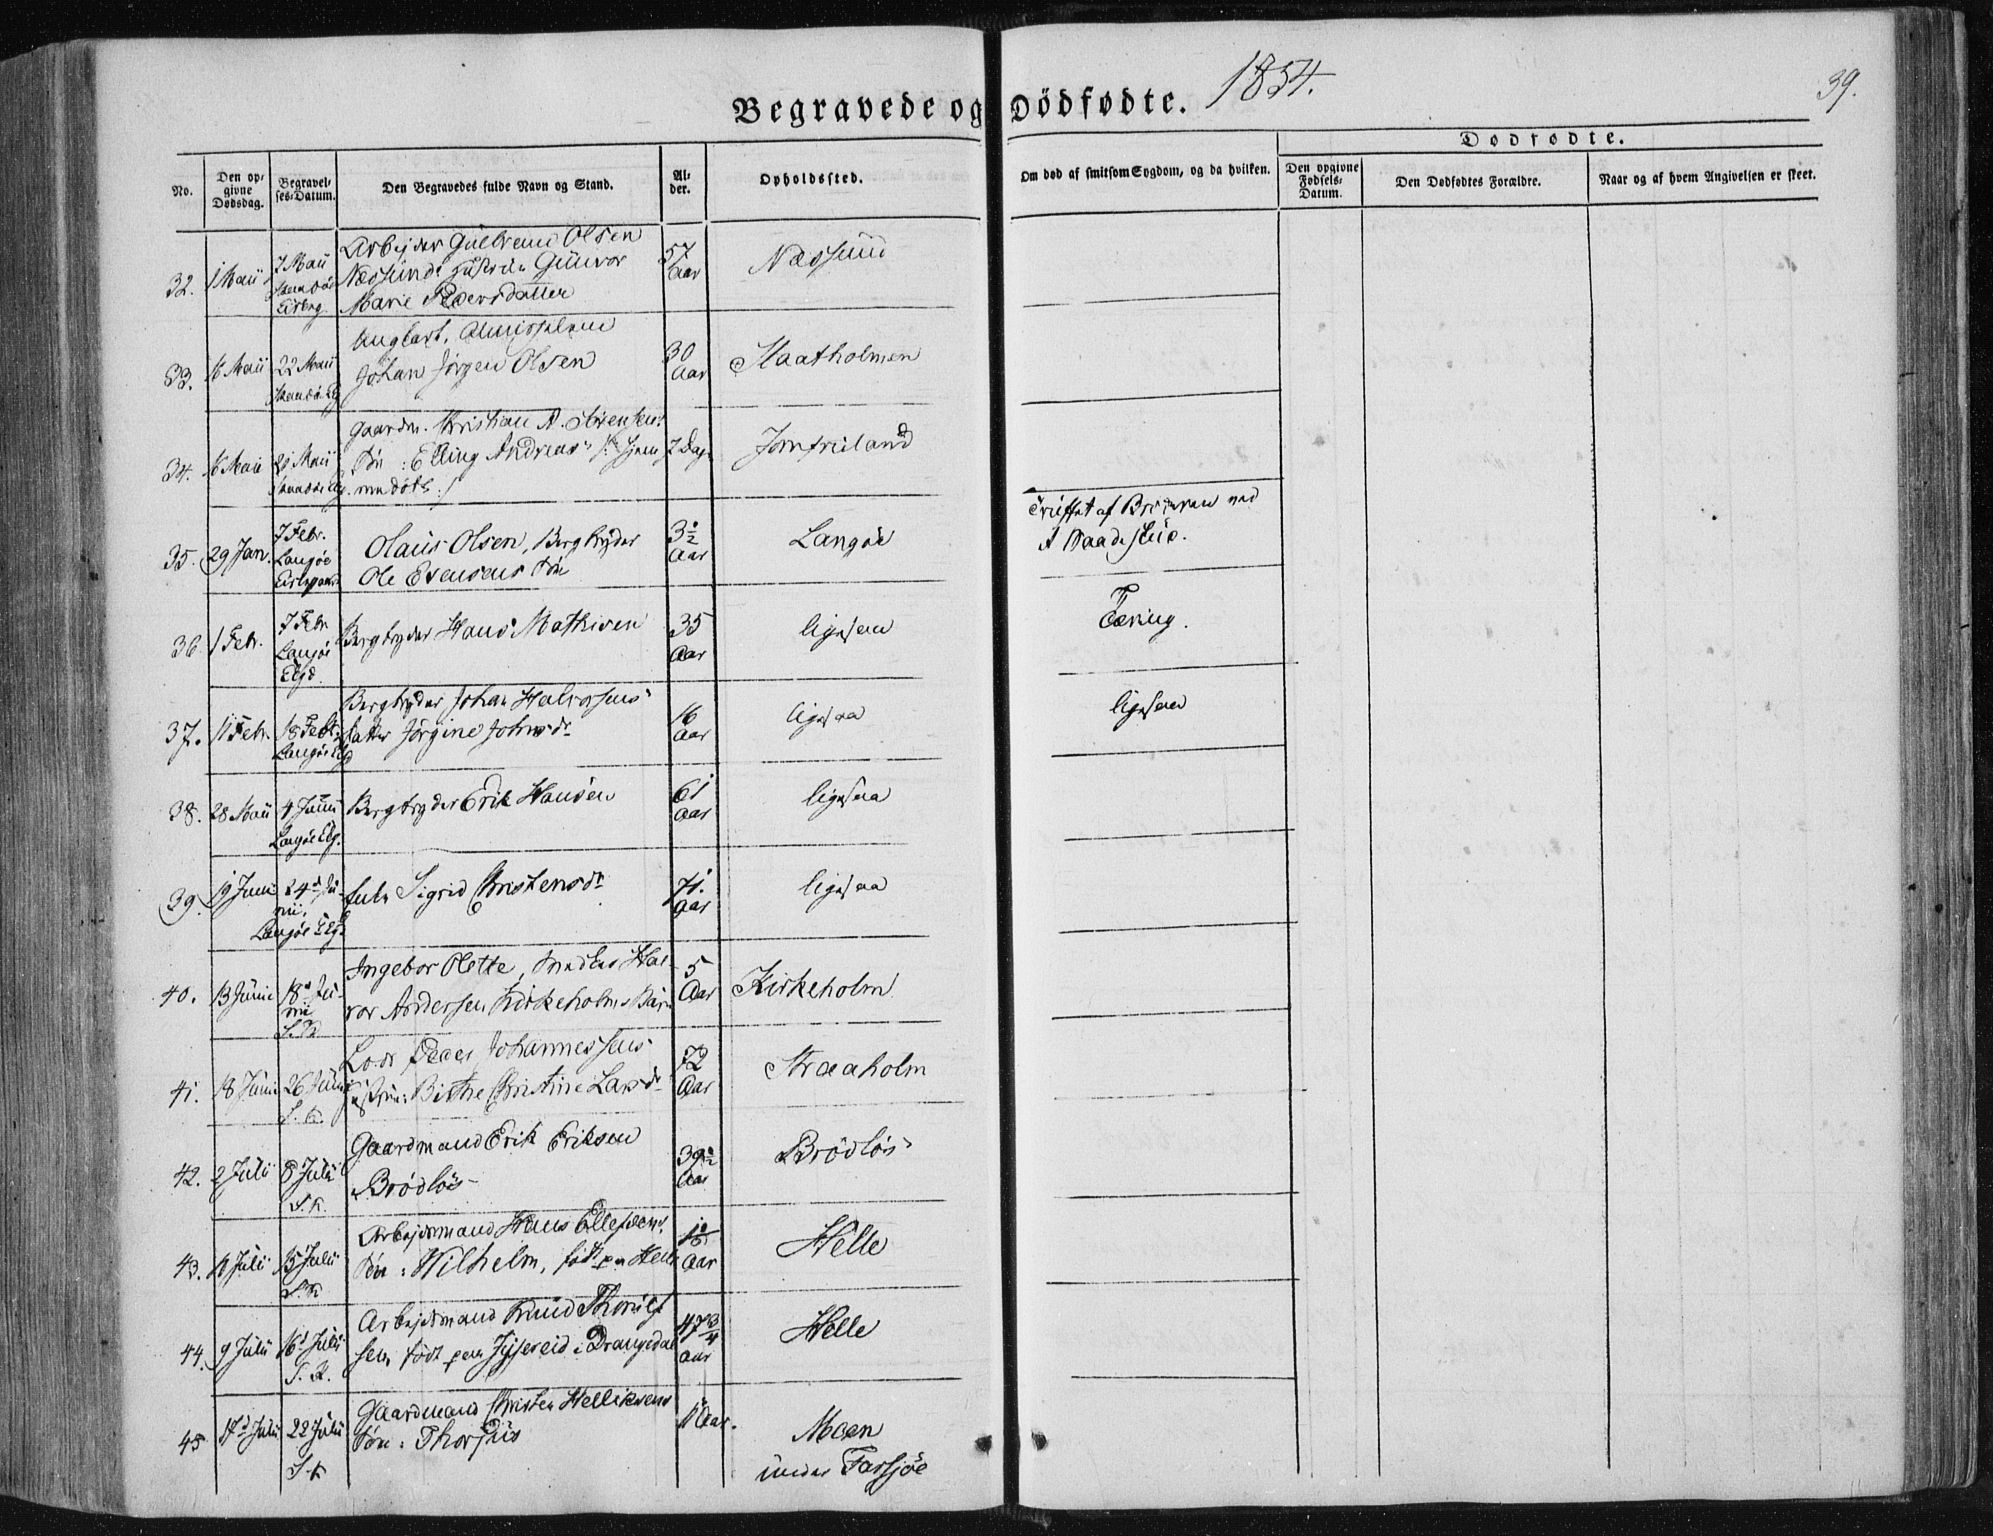 1854.
39.
Begravede og Dödfødte.
Dødfødte.
No.
Den op-
givne
Dødsdag.
Begravel-
ses-Datum.
Den Begravedes fulde Navn og Stand.
Al-
der.
Opholdssted.
Om død af smitsom Sygdom, og da hvilken.
Den opgivne
Fødsels-
Datum.
Den Dødfødtes Forældre.
Naar og af hvem Angivelsen er skeet.
32. 1 Maii 7 Maii
Arbejder Olsen
Gunvor
Marie
57 Aar
33. 16 Maii 22 Maii
Johan Jørgen Olsen
30 Aar
34. 16 Maii Maii
Gaardm. Kristian A.
Sön: Elling Andreas
7 Dage
Jomfruland
35. 29 Jan. 7 Febr. Langøe
Olaus Olsen, Bergbryder
Ole Sön
3½ Aar
Langøe
af
36. 1 Febr. 7 Febr. Langøe
Bergbryder Hans Mathisen
35 Aar
ligesaa
Tæring.
37. 11 Febr. 18 Febr. Langøe
Bergbryder Johan Halvorsens
Datter Jörgine Johnsdr
16 Aar
ligesaa
ligesaa
38. 28 Maii 4 Junii Langøe
Bergbryder Erik Hansen
61 Aar
ligesaa
39. 19 Juni 24de Junii. Langøe
Sigrid Christensdr
71. Aar
ligesaa
40. 13 Junii 18de Junii S.K
Ingebor Olette, Hal-
vor Andersen Kirkeholms Barn
5 Aar
Kirkeholm
41. 18 Junii 26 Junii S.K.
Lods Peder Johannessens
Hustrue: Birthe Christine Larsdr
72 Aar
Straaholm
42. 2 Julii 8 Julii S.K.
Gaardmand Erik Eriksen
Brödlös
39½ Aar
Brödlös
43. 10 Julii 15 Julii S.K
Arbejdsmand Hans Ellefsens
Sön: Wilhelm, födt paa Helle
Aar
Helle
44. 9 Julii 16de Julii S.K.
Arbejdsmand Knud
sen, födt paa i Drangedal
47¾ Aar
Helle
45 17de Julii 22 Julii S.K
Gaardmand Christen Helliksens
Sön: Thorjus
Aar.
Moen
under Farsjöe